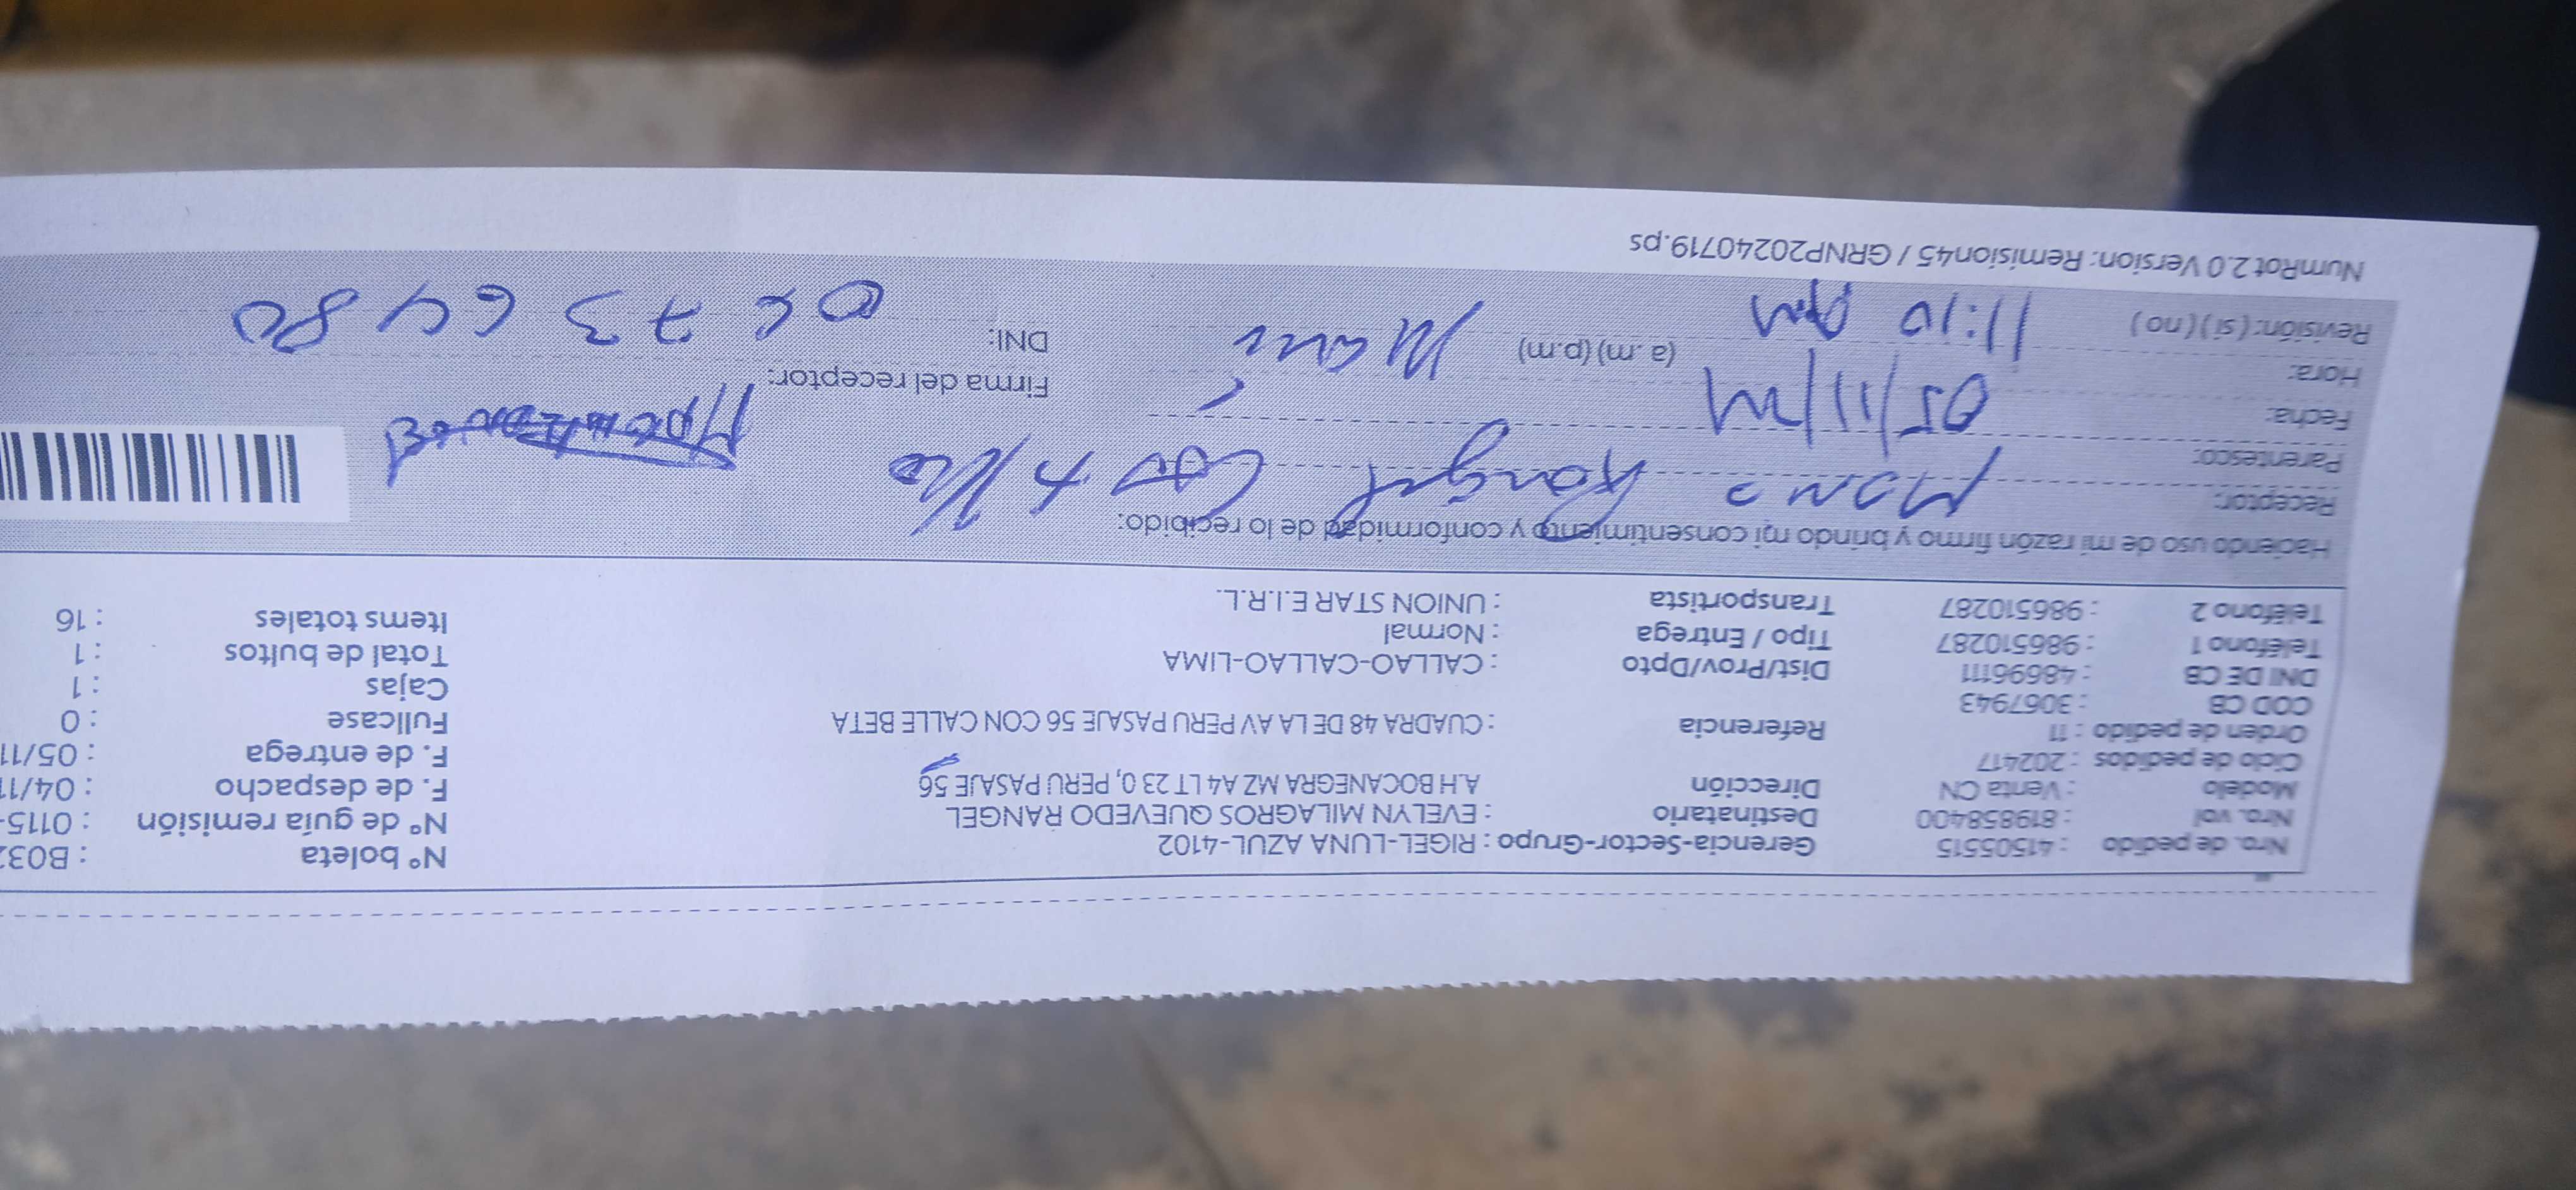 Nro. de pedido : 41505515 Gerencia-Sector-Grupo : RIGEL-LUNA AZUL-4102 N° boleta : B032
Nro. vol : 819858400 Destinatario : EVELYN MILAGROS QUEVEDO RANGEL N° de guía remisión : 0115-
Modelo : Venta CN Dirección A.H BOCANEGRA MZ A4 LT 23 0, PERU PASAJE 56 F. de despacho : 04/11
Ciclo de pedidos : 202417 F. de entrega : 05/11
Orden de pedido : 11 Referencia : CUADRA 48 DE LA AV PERU PASAJE 56 CON CALLE BETA Fullcase : 0
COD CB : 3067943 Cajas : 1
DNI DE CB : 48696111 Dist/Prov/Dpto : CALLAO-CALLAO-LIMA Total de bultos : 1
Teléfono 1 : 986510287 Tipo / Entrega : Normal Items totales : 16
Teléfono 2 : 986510287 Transportista : UNION STAR E.I.R.L.
Haciendo uso de mi razón firmo y brindo mi consentimiento y conformidad de lo recibido:
Receptor: Rangel
Parentesco:
Fecha: 05/11/ Firma del receptor:
Hora: (a.m) (p.m)
Revisión: ( si ) ( no ) 11:10 DNI:
NumRot 2.0 Version: Remision45 / GRNP20240719.ps